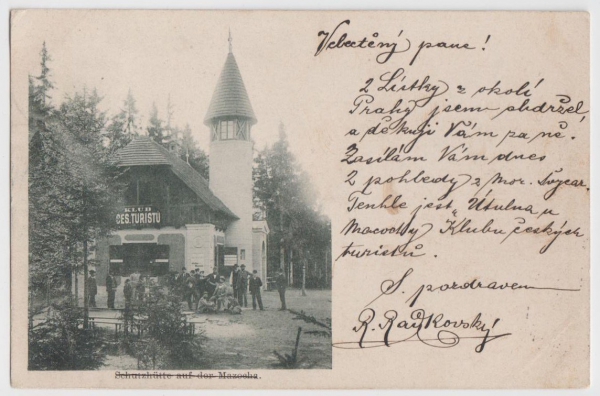 Velectěný pane!
2 Lístky z okolí
Prahy jsem obdržel
a děkuji Vám za ně.
Zasílám Vám dnes
2 pohledy z Mor. Švýcar.
Tenhle jest „Útulna u
Macochy" Klubu českých
turistů.
S pozdravem
R. Rajkovský
KLUB
ČES. TURISTŮ
Schutzhütte auf der Mazocha.